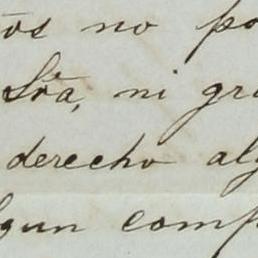 os no po
Sra, ni gra
derecho alg
lgun comp